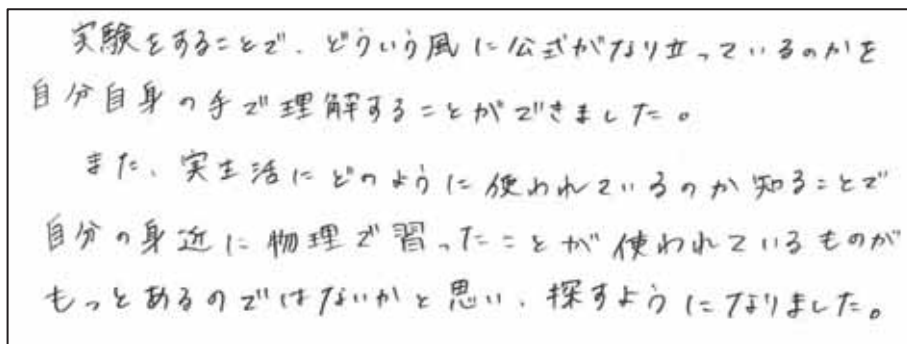 実験をすることで、どういう風に公式がなり立っているのかを
自分自身の手で理解することができました。
また、実生活にどのように使われているのか知ることで
自分の身近に物理で習ったことが使われているものが
もっとあるのではないかと思い、探すようになりました。